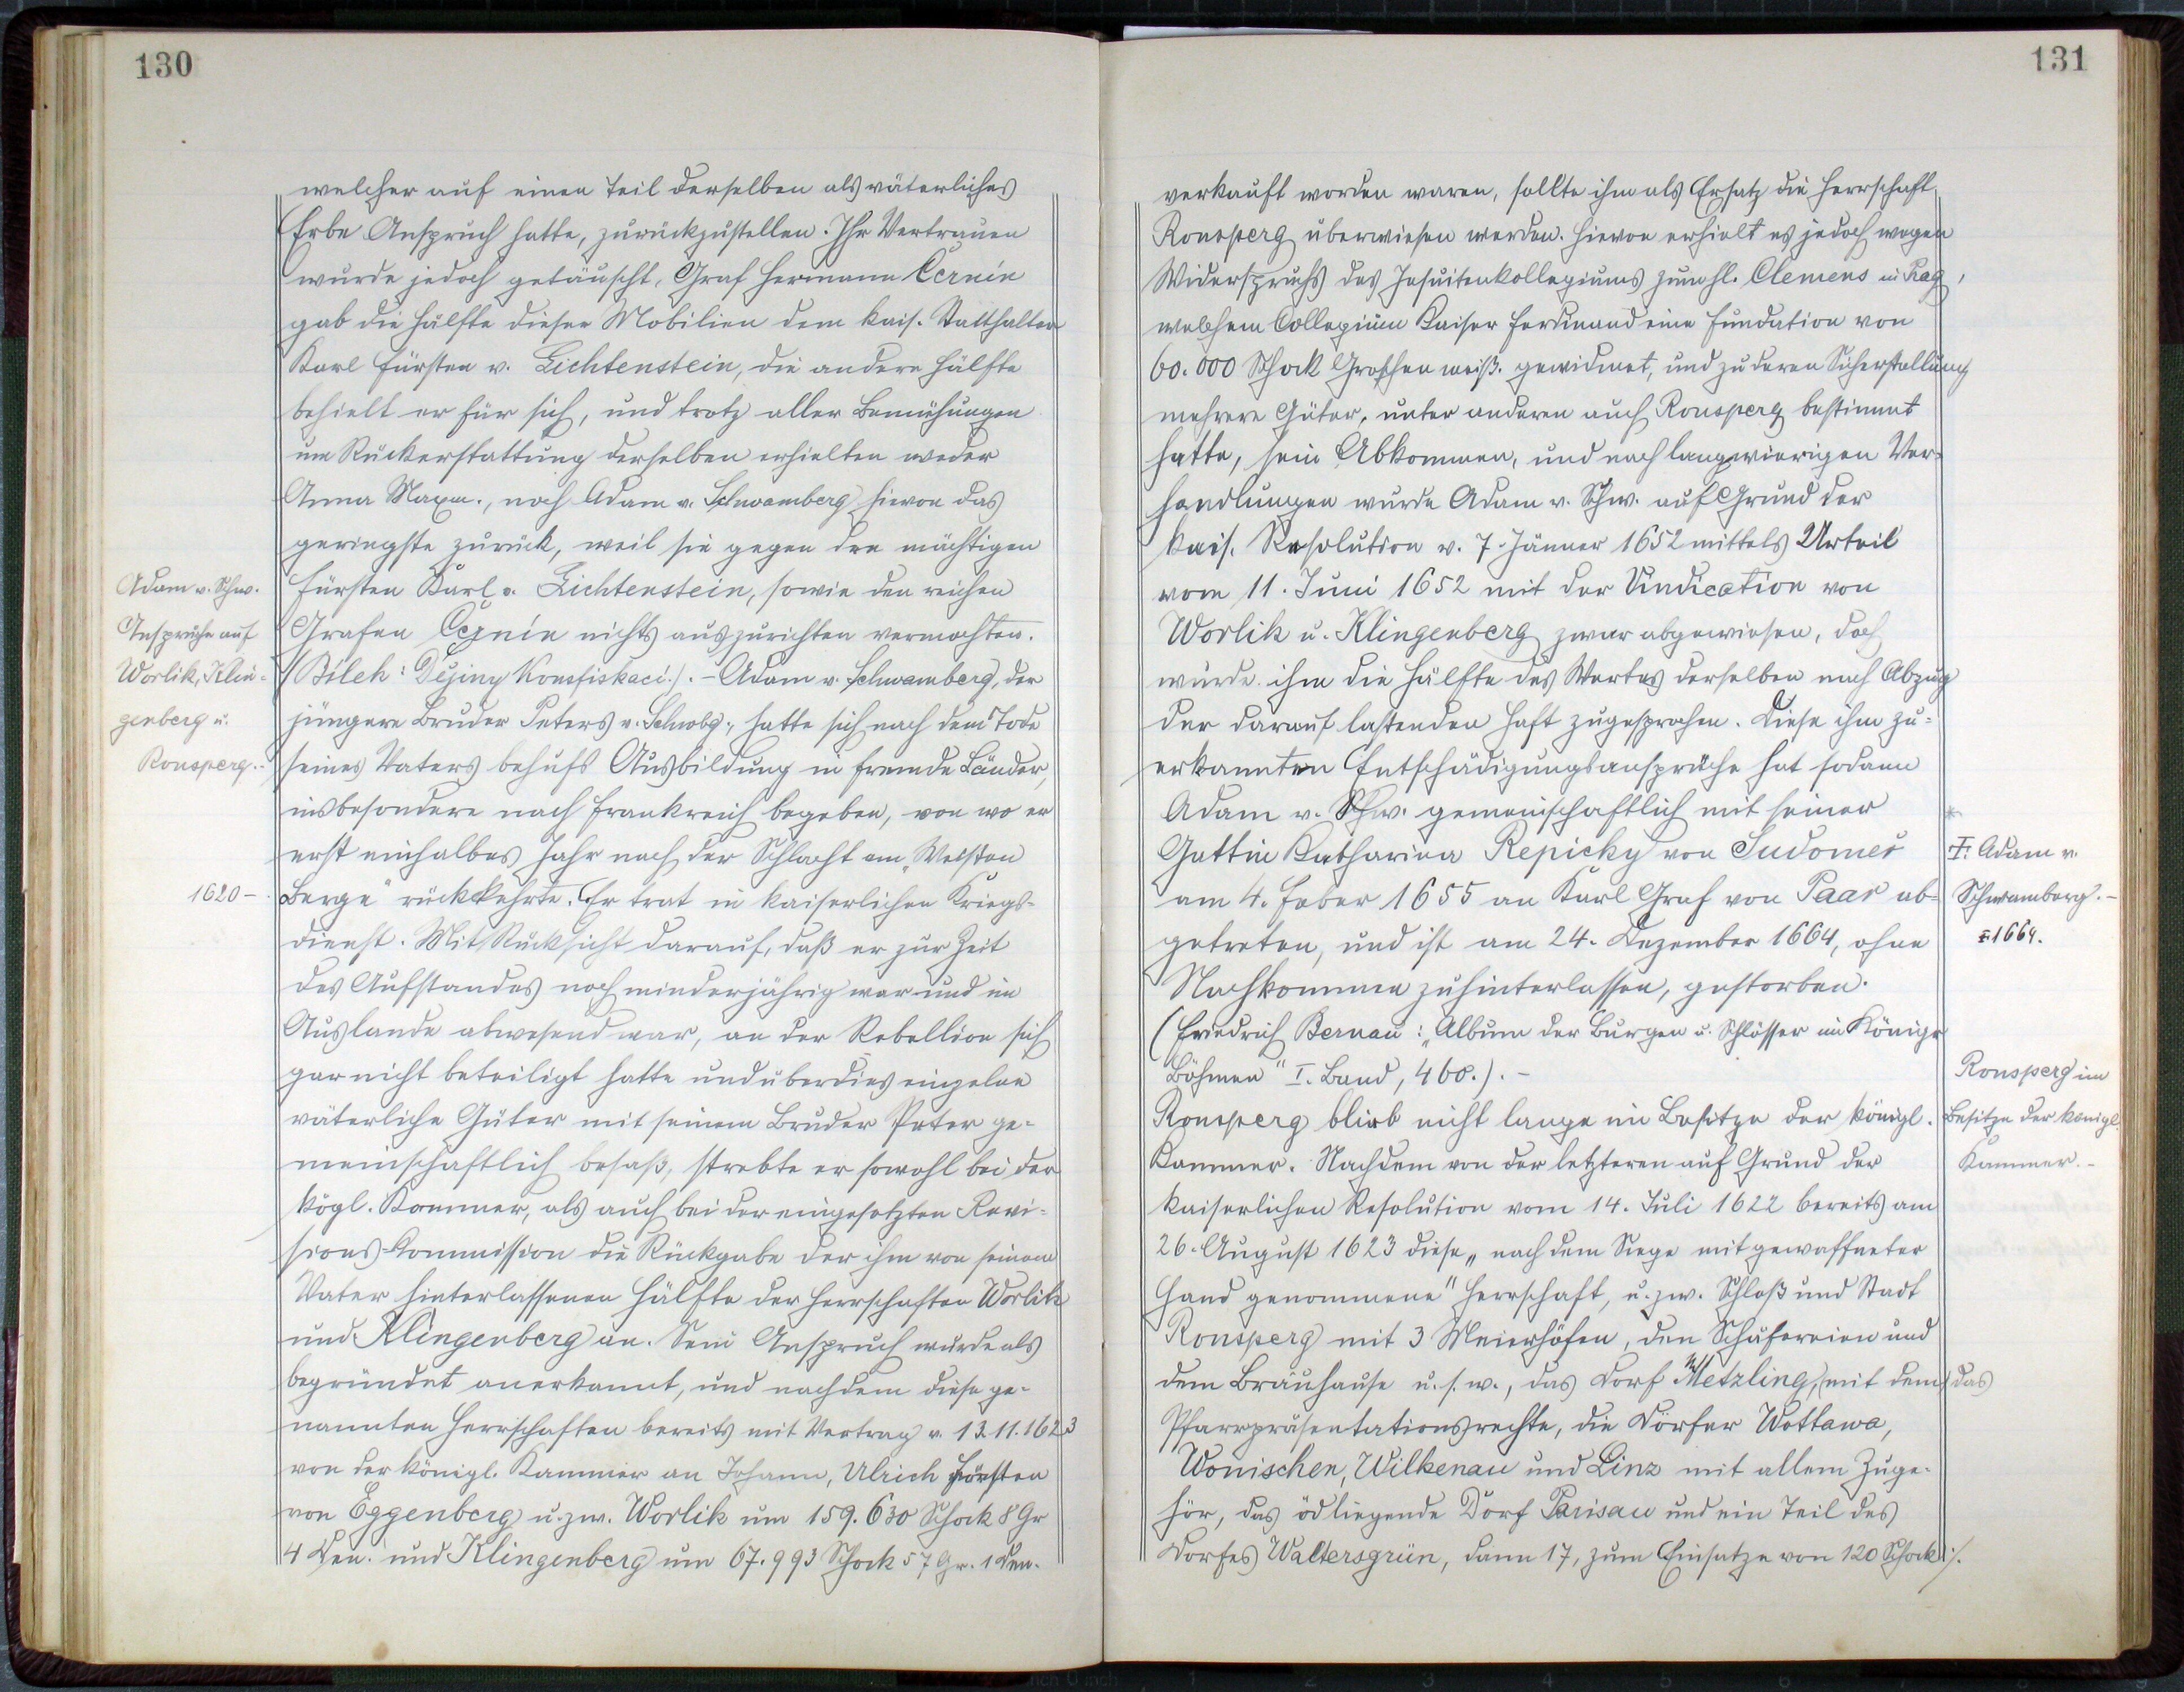 130
welcher auf einen Teil derselben als väterliches
Erbe Anspruch hatte, zurückzustellen. Ihr Vertrauen
wurde jedoch getäuscht, Graf Hermann Černín
gab die Hälfte dieser Mobilien dem kais. Statthalter
Karl Fürsten v. Lichtenstein, die andere Hälfte
behielt er für sich, und trotz aller Bemühungen
um Rückerstattung derselben erhielten weder
Anna Maxm., noch Adam v. Schwamberg hievon das
geringste zurück, weil sie gegen den mächtigen
Adam v. Schw.
Fürsten Karl v. Lichtenstein, sowie den reichen
Ansprüche auf
Grafen Černín nichts auszurichten vermochten.
Worlik, Klin=
(Bílek: Dějiny Konsfiskací.). - Adam v. Schwamberg, der
genberg u.
jüngere Bruder Peters v. Schwbg., hatte sich nach dem Tode
Ronsperg.-
seines Vaters behufs Ausbildung in fremde Länder,
insbesondere nach Frankreich begeben, von wo er
erst einhalbes Jahr nach der Schlacht am „Weissen
1620 -
Berge" rückkehrte. Er trat in kaiserlichen Kriegs-
dienst. Mit Rücksicht darauf, daß er zur Zeit
des Aufstandes noch minderjährig war und im
Auslande abwesend war, an der Rebellion sich
gar nicht beteiligt hatte und überdies einzelne
väterliche Güter mit seinem Bruder Peter ge-
meinschaftlich besaß, strebte er sowohl bei der
kögl. Kammer, als auch bei der eingesetzten Revi=
sions-Kommission die Rückgabe der ihm von seinem
Vater hinterlassenen Hälfte der Herrschaften Worlik
und Klingenberg an. Sein Anspruch wurde als
begründet anerkannt, und nachdem diese ge-
nannten Herrschaften bereits mit Vertrag v. 13.11.1623
von der königl. Kammer an Johann, Ulrich Fürsten
von Eggenberg u. zw. Worlik um 159.630 Schock 8 Gr
4 Den. und Klingenberg um 67.993 Schock 57 Gr. 1 Den.
131
verkauft worden waren, sollte ihm als Ersatz die Herrschaft
Ronsperg überwiesen werden. Hievon erhielt es jedoch wegen
Widerspruchs des Jesuitenkollegiums zum hl. Clemens in Prag,
welchem Collegium Kaiser Ferdinand eine Fundation von
60.000 Schock Groschen meiß. gewidmet, und zu deren Sicherstellung
mehrere Güter, unter anderen auch Ronsperg bestimmt
hatte, sein Abkommen, und nach langwierigen Ver-
handlungen wurde Adam v. Schw. auf Grund der
kais. Resolution v. 7. Jänner 1652 mittels Urteil
vom 11. Juni 1652 mit der Vindication von
Worlik u. Klingenberg zwar abgewiesen, doch
wurde ihm die Hälfte des Wertes derselben nach Abzug
der darauf lastenden Haft zugesprochen. Diese ihm zu=
erkannten Entschädigungsansprüche hat sodann
Adam v. Schw. gemeinschaftlich mit seiner
Gattin Katharina Repicky von Sudomeř
‡. Adam v.
am 4. Feber 1655 an Karl Graf von Paar ab=
Schwamberg. -
getreten, und ist am 24. Dezember 1664, ohne
1664.
Nachkommen zu hinterlassen, gestorben.
(Friedrich Bernau: „Album der Burgen u. Schlösser im Königr
Böhmen" I. Band, 460.). -
Ronsperg im
Ronsperg blieb nicht lange im Besitze der königl.
Besitze der königl.
Kammer. Nachdem von der letzteren auf Grund der
Kammer. -
kaiserlichen Resolution vom 14. Juli 1622 bereits am
26. August 1623 diese „nach dem Siege mit gewaffneter
Hand genommene" Herrschaft, u. zw. Schloß und Stadt
Ronsperg mit 3 Meierhöfen, den Schäfereien und
dem Bräuhause u. s. w., das Dorf Metzling, (mit dem das
Pfarrpräsentationsrechte, die Dörfer Wottawa,
Wonischen, Wilkenau und Linz mit allem Zuge-
hör, das ödliegende Dorf Parisau und ein Teil des
Dorfes Waltersgrün, dann 17, zum Einsatze von 120 Schock ·/.